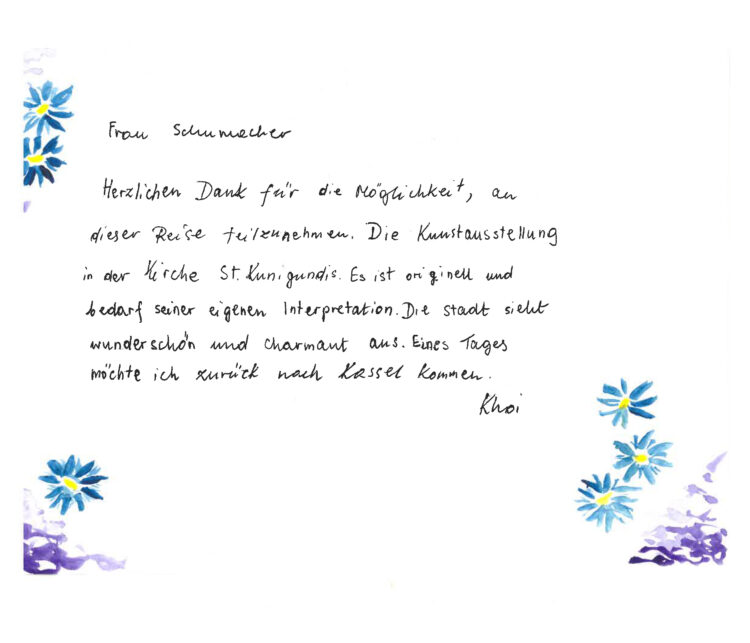 Frau Schumacher
Herzlichen Dank für die Möglichkeit, an
dieser Reise teilzunehmen. Die Kunstausstellung
in der Kirche St. Kunigundis. Es ist originell und
bedarf seiner eigenen Interpretation. Die Stadt sieht
wunderschön und charmant aus. Eines Tages
möchte ich zurück nach Kassel kommen.
Khoi